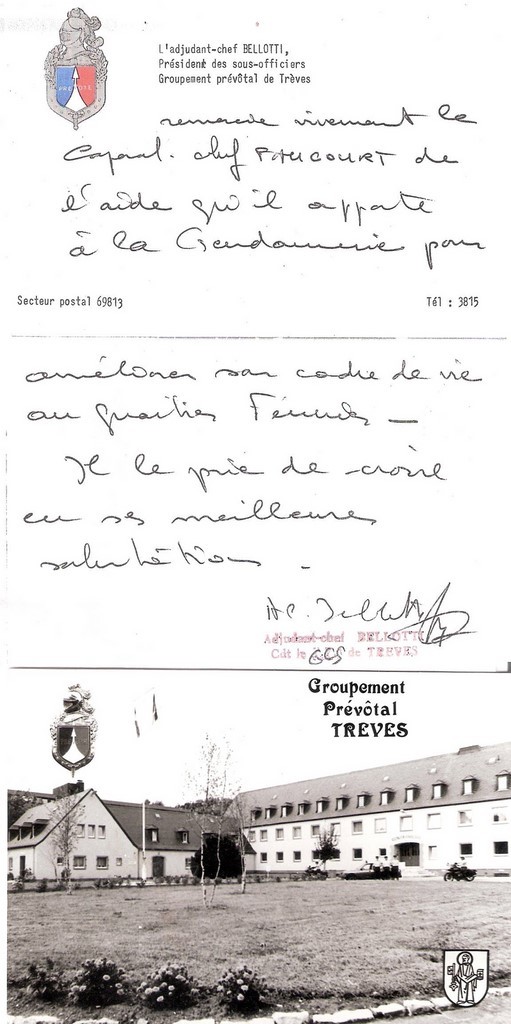 L'adjudant-chef BELLOTTI,
Président des sous-officiers
Groupement prévôtal de Trèves
remercie vivement le
Caporal. chef FAUCOURT de
l'aide qu'il apporte
à la Gendarmerie pour
Secteur postal 69813
Tél : 3815
améliorer son cadre de vie
au quartier
Il le prie de croire
en ses meilleures
salutations.
Adjudant-chef BELLOTTI
Cdt le de TREVES
Groupement
Prévôtal
TREVES